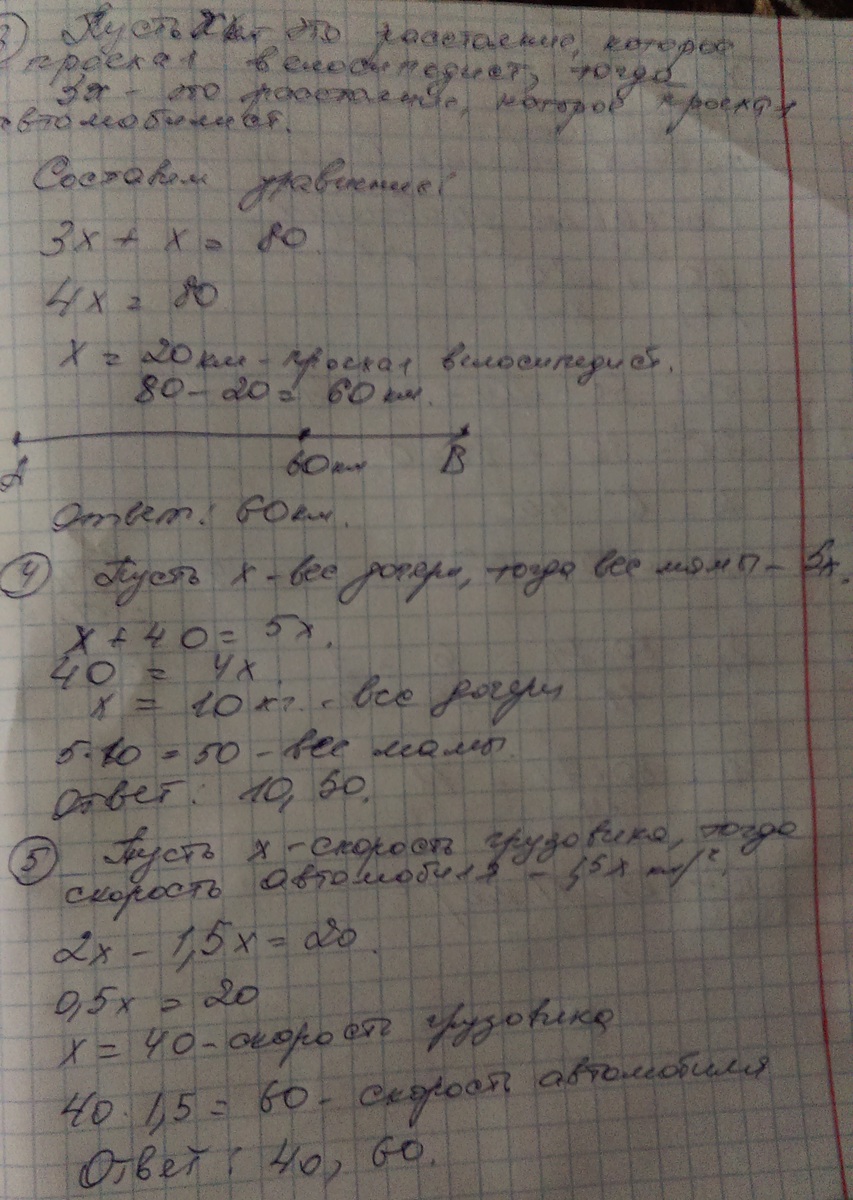 3) Пусть х км это расстояние, которое
проехал велосипедист, тогда
3х - это расстояние, которое проехал
автомобилист.
Составим уравнение:
3х + х = 80.
4х = 80
х = 20 км - проехал велосипедист.
80 - 20 = 60 км.
А 60 км В
Ответ: 60 км.
4) Пусть х - вес дочери, тогда вес мамы - 5х.
х + 40 = 5х.
40 = 4х.
х = 10 кг. - вес дочери
5·10 = 50 - вес мамы.
Ответ: 10, 50.
5) Пусть х - скорость грузовика, тогда
скорость автомобиля - 1,5х км/ч.
2х - 1,5х = 20.
0,5х = 20
х = 40 - скорость грузовика
40 · 1,5 = 60 - скорость автомобиля
Ответ: 40, 60.